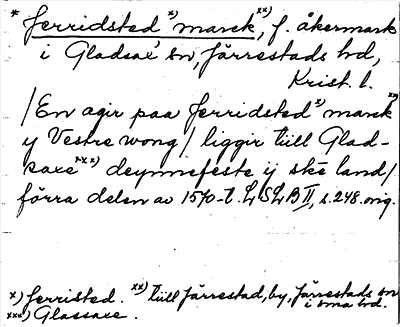 * Jerridsted x) marck xx), f. åkermark
i Gladsax sn, Järrestads hd,
Krist. l.
/En agir paa Jerridsted x) marck xx)
y Vestre wong/ liggir tiill Glad-
saxe xxx) deynnefeste ij ské land/
förra delen av 1570-t. LSLB II, s. 248. orig.
x) Jerristed. xx) tiill Järrestad, by, Järrestads sn
i sma hd.
xxx) Glassaxe.